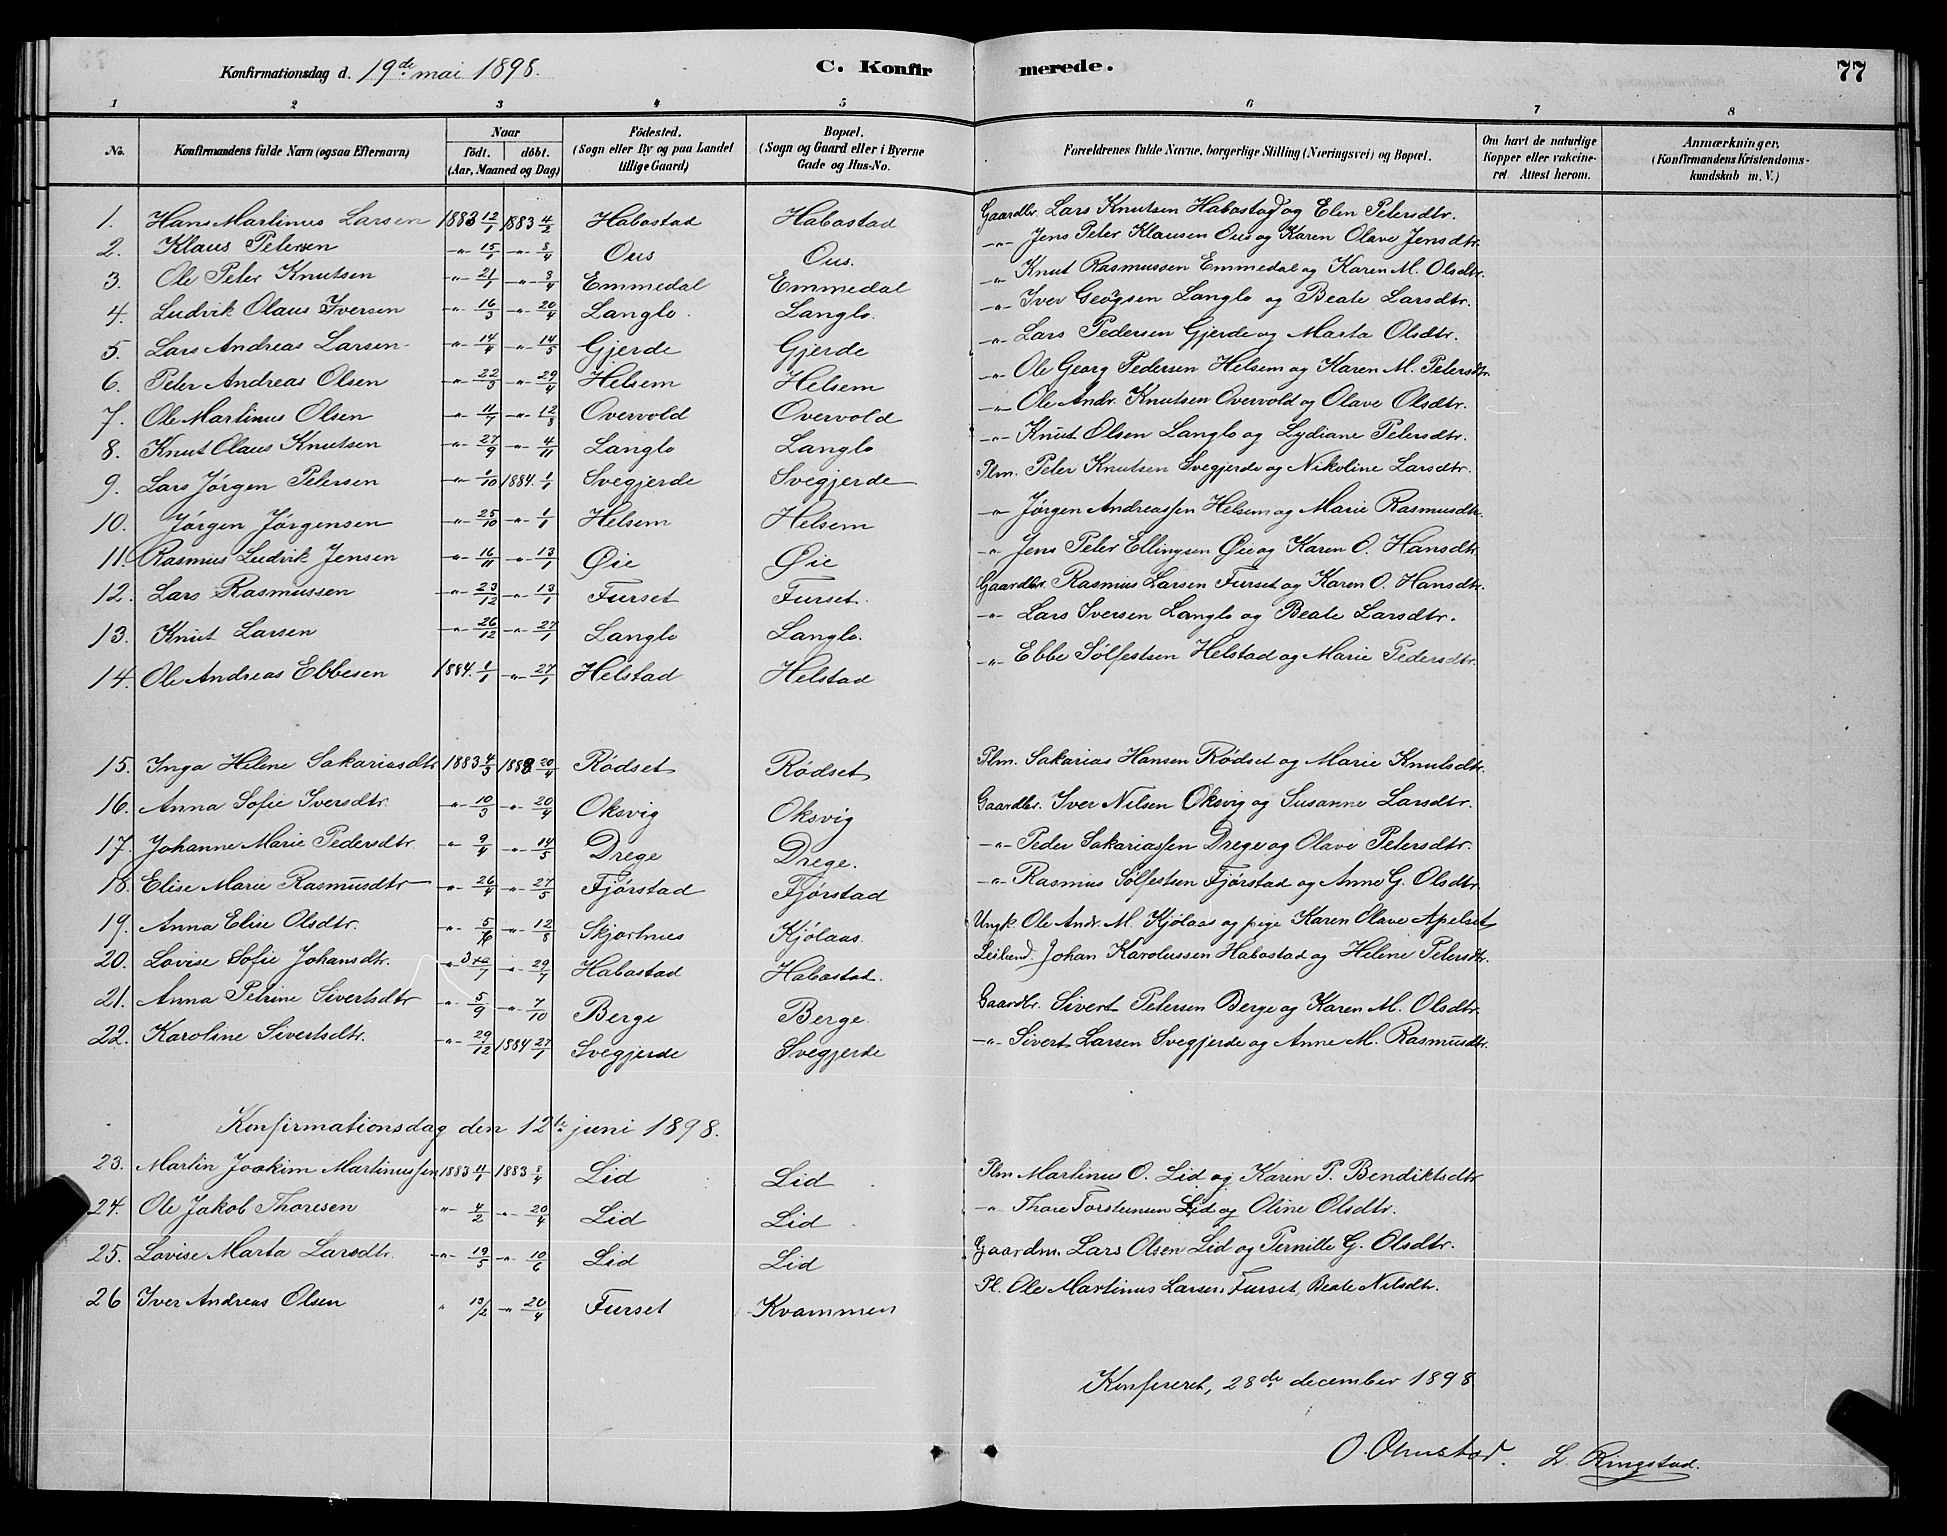 Konfirmationsdag d. 19de mai 1898. C. Konfirmerede. 77
1 2 3 4 5 6 7 8
No. Konfirmandens fulde Navn (ogsaa Efternavn) Naar födt. döbt. (Aar, Maaned og Dag) Födested. (Sogn eller By og paa Landet tillige Gaard) Bopæl. (Sogn og Gaard eller i Byerne Gade og Hus-No. Forældrenes fulde Navne, borgerlige Stilling (Næringsvei) og Bopæl. Om havt de naturlige Kopper eller vakcineret. Attest herom. Anmærkninger, (Konfirmandens Kristendomskundskab m. V.)
1. Hans Martinus Larsen 1883 12/1 1883 4/2 Habostad Habostad Gaardbr. Lars Knutsen Habostad og Elen Petersdtr.
2. Klaus Petersen -"- 15/1 -"- 8/4 Ous Ous. -"- Jens Peter Klausen Ous og Karen Olave Jensdtr.
3. Ole Peter Knutsen -"- 21/1 -"- 8/4 Emmedal Emmedal " Knut Rasmussen Emmedal og Karen M. Olsdtr.
4. Ludvik Olaus Iversen -"- 16/3 -"- 20/4 Langlo. Langlo. -"- Iver Georgsen Langlo og Beate Larsdtr.
5. Lars Andreas Larsen -"- 14/4 -"- 14/5 Gjerde Gjerde -"- Lars Pedersen Gjerde og Marta Olsdtr.
6. Peter Andreas Olsen -"- 22/3 -"- 29/4 Helsem Helsem -"- Ole Georg Pedersen Helsem og Karen M. Petersdtr.
7. Ole Martinus Olsen -"- 11/7 -"- 12/8 Overvold Overvold -"- Ole Andr. Knutsen Overvold og Olave Olsdtr.
8. Knut Olaus Knutsen -"- 27/9 -"- 4/11 Langlo Langlo -"- Knut Olsen Langlo og Lydiane Petersdtr.
9. Lars Jørgen Petersen -"- 1/10 1884. 1/1 Svegjerde Svegjerde Plm. Peter Knutsen Svegjerde og Nikoline Larsdtr.
10. Jørgen Jørgensen -"- 25/10 -"- 1/1 Helsem Helsem -"- Jørgen Andreassen Helsem og Marie Rasmusdtr.
11. Rasmus Ludvik Jensen -"- 16/11 -"- 13/1 Øie Øie -"- Jens Peter Ellingsen Øie og Karen O. Hansdtr.
12. Lars Rasmussen -"- 23/12 -"- 13/1 Furset Furset. Gaardbr. Rasmus Larsen Furset og Karen O. Hansdtr.
13. Knut Larsen -"- 26/12 -"- 27/1 Langlo Langlo. -"- Lars Iversen Langlo og Beate Larsdtr.
14. Ole Andreas Ebbesen 1884. 1/1 -"- 27/1 Helstad Helstad -"- Ebbe Sølfestsen Helstad og Marie Pedersdtr.
15. Inga Helene Sakariasdtr 1883 4/3 1883 20/4 Rødset Rødset Plm. Sakarias Hansen Rødset og Marie Knutsdtr.
16. Anna Sofie Iversdtr. -"- 10/3 -"- 20/4 Oksvig Oksvig Gaardbr. Iver Nilsen Oksvig og Susanne Larsdtr.
17. Johanne Marie Pedersdtr. -"- 9/4 -"- 14/5 Drege Drege. -"- Peder Sakariassen Drege og Olave Petersdtr.
18. Elise Marie Rasmusdtr -"- 26/4 -"- 27/5 Fjørstad Fjørstad -"- Rasmus Sølfestsen Fjørstad og Anne G. Olsdtr.
19. Anna Elise Olsdtr. -"- 5/6 -"- 12/8 Skjortnes Kjølaas. Ungk. Ole Andr. M. Kjølaas og pige Karen Olave Apelset
20. Lovise Sofie Johansdtr. -"- -"- 29/7 Habostad Habostad. Leilænd. Johan Karolussen Habostad og Helene Petersdtr.
21. Anna Petrine Sivertsdtr -"- 5/9 -"- 7/10 Berge Berge. Gaardbr. Sivert Petersen Berge og Karen M. Olsdtr.
22. Karoline Sivertsdtr. -"- 29/12 1884 27/1 Svegjerde Svegjerde -"- Sivert Larsen Svegjerde og Anne M. Rasmusdtr.
Konfirmationsdag den 12te juni 1898.
23. Martin Joakim Martinussen 1883 11/1 1883 8/4 Lid Lid Plm Martinus O. Lid og Karen P. Bendiktsdtr
24. Ole Jakob Thoresen -"- 4/2 -"- 20/4 Lid Lid -"- Thore Torsteinsen Lid og Oline Olsdtr.
25. Lovise Marta Larsdtr. -"- 19/5 -"- 10/6 Lid Lid Gaardm. Lars Olsen Lid og Pernille G. Olsdtr.
26 Iver Andreas Olsen " 19/2 -"- 20/4 Furset Kvammen Pl. Ole Martinus Larsen Furset, Beate Nilsdtr.
Konfereret, 28de december 1898
O. Olmstad. L. Ringstad.